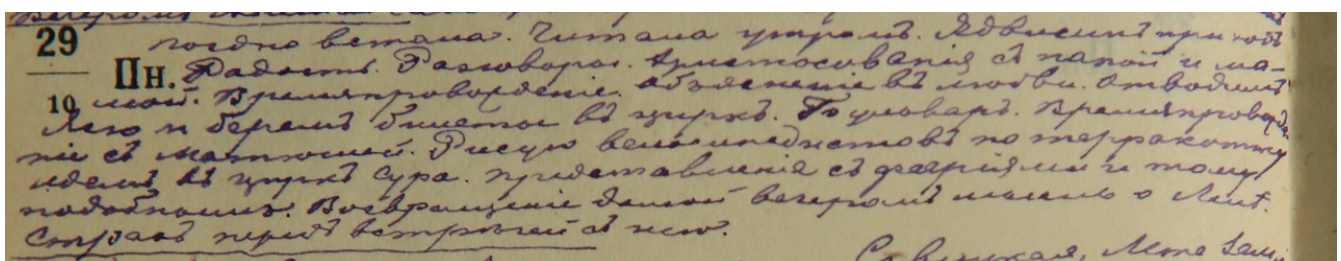 Вечеромъ
29 поздно встала. Читала утромъ. Ядвисинъ приходъ
Пн. Радость. Разговоры. Христосованія съ папой и ма-
10 мой. Времяпровожденіе. Объясненіе въ любви. Отводимъ
Лелю и беремъ билеты въ циркъ. Времяпровожде
ніе съ Матюшей. Рисую велосипедистовъ по терракотту
идемъ въ циркъ Сура. Представленія съ фееріями и тому
подобнымъ. Возвращеніе домой вечеромъ мысль о
Страхъ передъ встрѣчей съ нею.